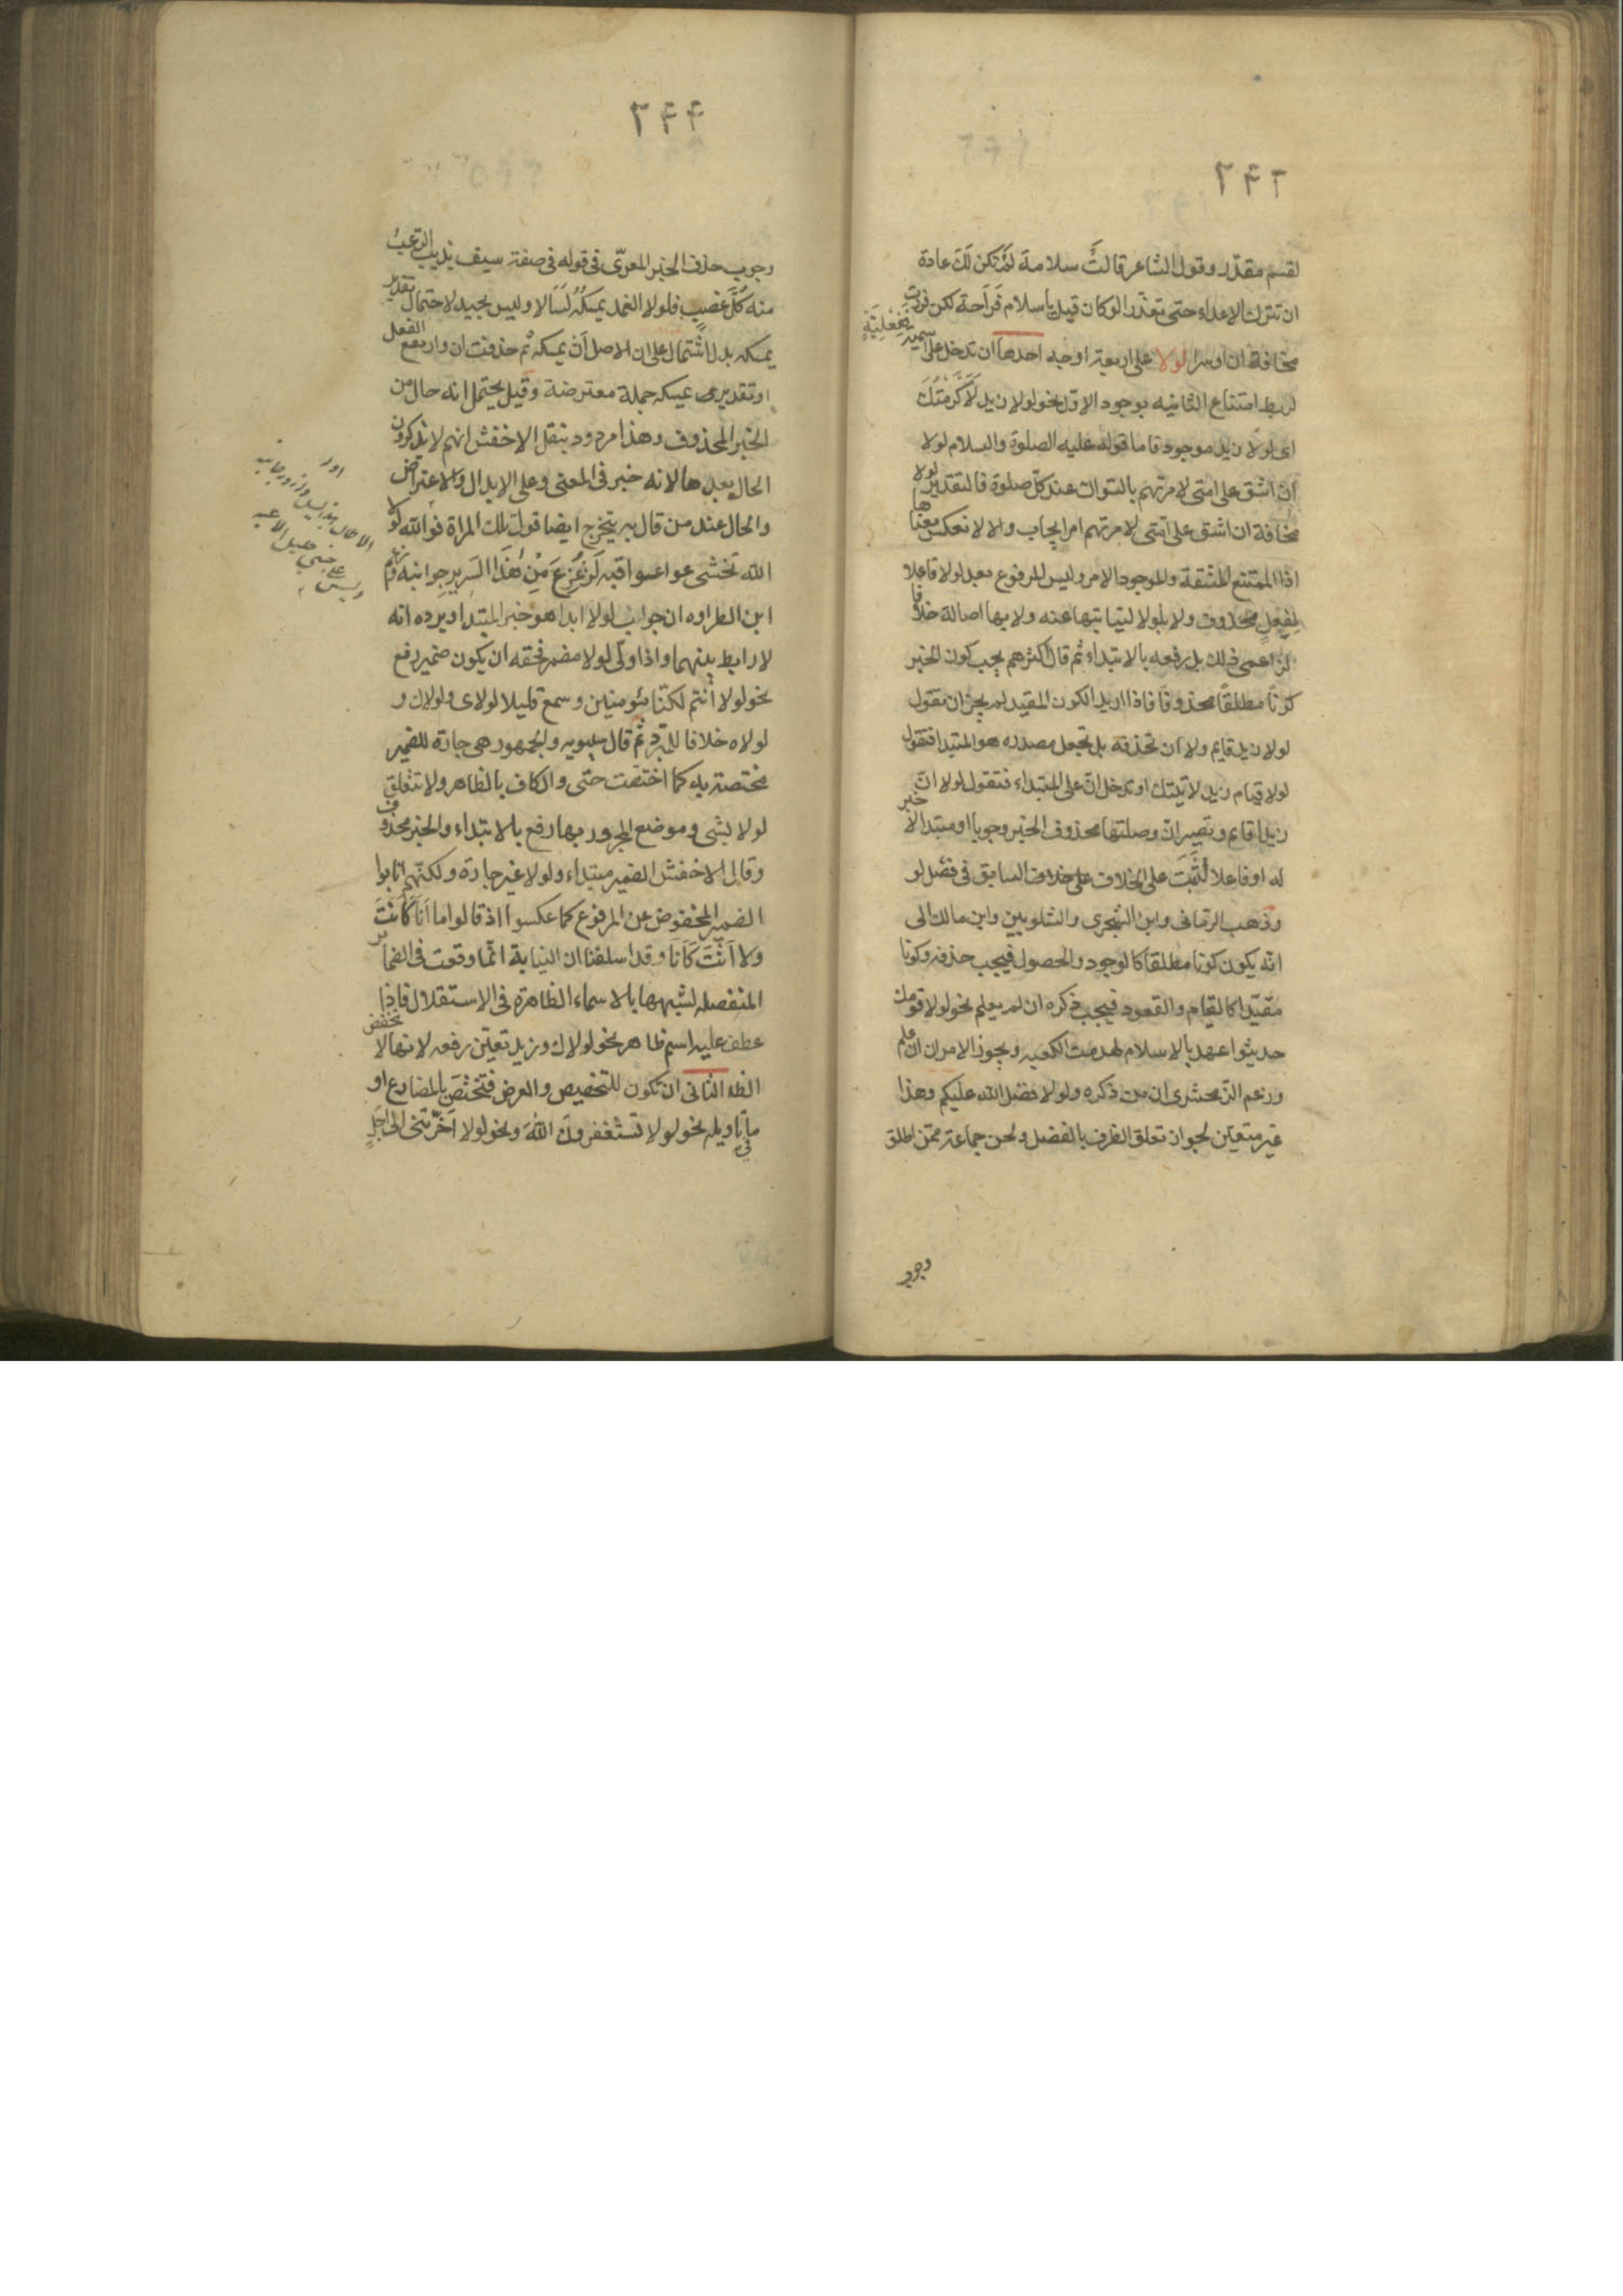 ٢٤٢
لقسم مقدّر وقول الشاعر قالتْ سلامة لم تكن لك عادة
ان تترك الاعداء حتى تعذّرا لو كان قيل يا سلام فراحة لكن فررت
مخافة ان اوسرا لولا على اربعة اوجه احدها ان تدخل على اسمية ففعليّة
لربط امتناع الثانيه بوجود الاوّل نحو لولا زيد لَاَكْرَمْتُكَ
اى لولا زيد موجود فاما قوله عليه الصلوة والسلام لولا
ان اشق على امتى لامرتهم بالسواك عند كلّ صلوة فالتقدير لولا
مخافة ان اشق على امّتى لامرتهم امر ايجاب والا لانعكس معناها
اذا الممتنع المشقة والموجود الامر وليس المرفوع بعد لولا فاعلا
لِفِعْلٍ محذوف ولا بلولا لنيابتها عنه ولا بها اصالة خلافا
لزاعمى ذلك بل رفعه بالابتداء ثم قال اكثرهم يجب كون الخبر
كونًا مطلقًا محذوفًا فاذا اريد الكون المقيد لم يجز ان تقول
لولا زيد قايم ولا ان تحذفه بل تجعل مصدره هو المبتدا فتقول
لولا قيام زيد لاتيتك او تدخل انّ على المبتداء فتقول لولا انّ
زيدا قايم وتصير انّ وصلتها محذوف الخبر وجوبا او مبتدا لا خبر
له او فاعلا لثَبَتَ على الخلاف على خلاف السابق فى فصل لو
وذهب الرمانى وابن الشجرى والشلوبين وابن مالك الى
انّه يكون كونا مطلقا كالوجود والحصول فيجب حذفه وكونا
مقيّدا كالقيام والقعود فيجب ذكره ان لم يعلم نحو لولا قومك
حديثوا عهد بالاسلام لهدمت الكعبه ويجوز الامران ان علم
وزعم الزمخشرى ان من ذكره ولولا فضل الله عليكم وهذا
غير متعيّن لجواز تعلق الظرف بالفضل ولحن جماعة ممّن اطلق
وجوب
٢٤٤
وجوب حذف الخبر المعرّى فى قوله فى صفة سيف يذيب الرّعبُ
منه كُلَّ عضبٍ فلولا الغمد يمسكُهُ لَسَالا وليس بجيد لاحتمال تقدير
يمسكه بدل اشتمال على ان الاصل أن يمسكه ثم حذفت ان وارتفع الفعل
او تقدير يمسكه جملة معترضة وقيل يحتمل انه حال من
الخبر المحذوف وهذا مردود بنقل الاخفش انهم لا يذكرون
الحال بعدها لانه خبر فى المعنى وعلى الابدال والاعتراض
والحال عند من قال به يتخرج ايضا قول تلك المراة فوالله لولا
الله تخشى عواقبه لَزُعْزِعَ مِنْ هٰذَا السَرِيرِ جوانبه وزعم
ابن الطراوه ان جواب لولا ابدا هو خبر المبتدا ويرده انه
لا رابط بينهما واذا ولى لولا مضمر فحقه ان يكون ضمير رفع
نحو لولا أنتم لكنّا مؤمنين وسمع قليلا لولاى ولولاك و
لولاه خلافا للمبرّد ثمّ قال سيبويه والجمهور هى جارة للضمير
مختصة به كما اختصّت حتى والكاف بالظاهر ولا تتعلق
لولا بشى وموضع المجرور بها رفع بالابتداء والخبر محذوف
وقال الاخفش الضمير مبتداء ولولا غير جارة ولكنّهم انابوا
الضمير المخفوض عن المرفوع كما عكسوا اذ قالوا ما اَنَا كَاَنْتَ
ولا اَنْتَ كَاَنَا وقد اسلفنا ان النيابة انّما وقعت فى الضمائر
المنفصله لشبهها بالاسماء الظاهرة فى الاستقلال فاذا
عطف عليه اسم ظاهر نحو لولاك وزيد تعيّن رفعه لانها لا تخفض
الظه الثانى ان تكون للتحضيض والعرض فتختصّ بالمضارع او
ما فى تاويله نحو لولا تَسْتَغفرونَ اللّهَ ونحو لولا اَخَّرْتَنى الى اَجَلٍ